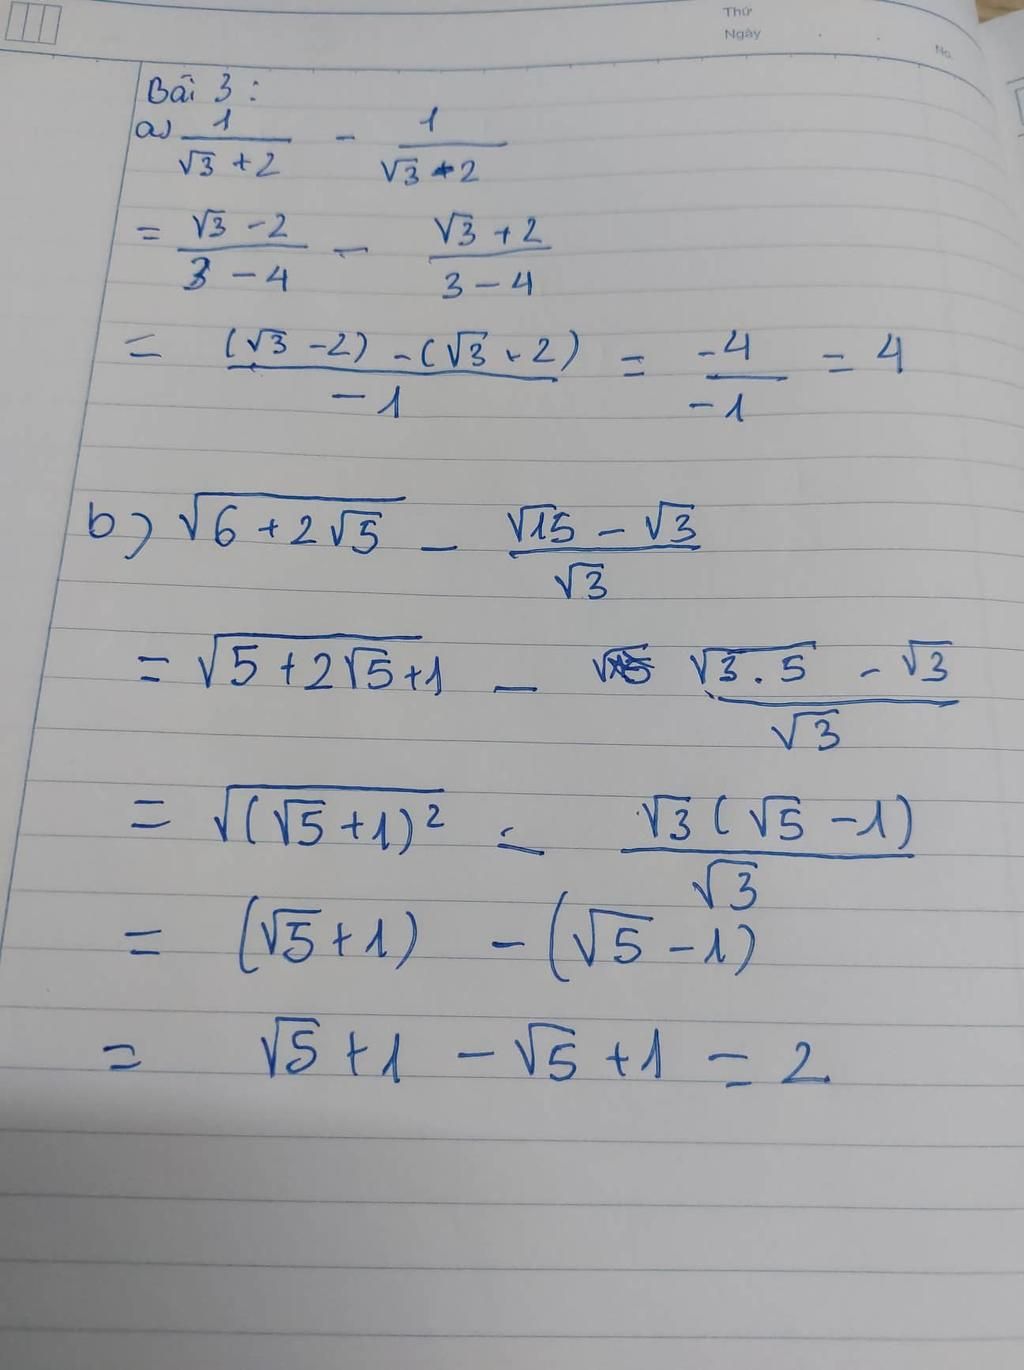 Thứ
Ngày
No.
Bài 3 :
a) 1/(√3 + 2) - 1/(√3 - 2)
= (√3 - 2)/(3 - 4) - (√3 + 2)/(3 - 4)
= ((√3 - 2) - (√3 + 2))/(-1) = -4/-1 = 4
b) √(6 + 2√5) - (√15 - √3)/√3
= √(5 + 2√5 + 1) - (√(3.5) - √3)/√3
= √((√5 + 1)²) - √3(√5 - 1)/√3
= (√5 + 1) - (√5 - 1)
= √5 + 1 - √5 + 1 = 2